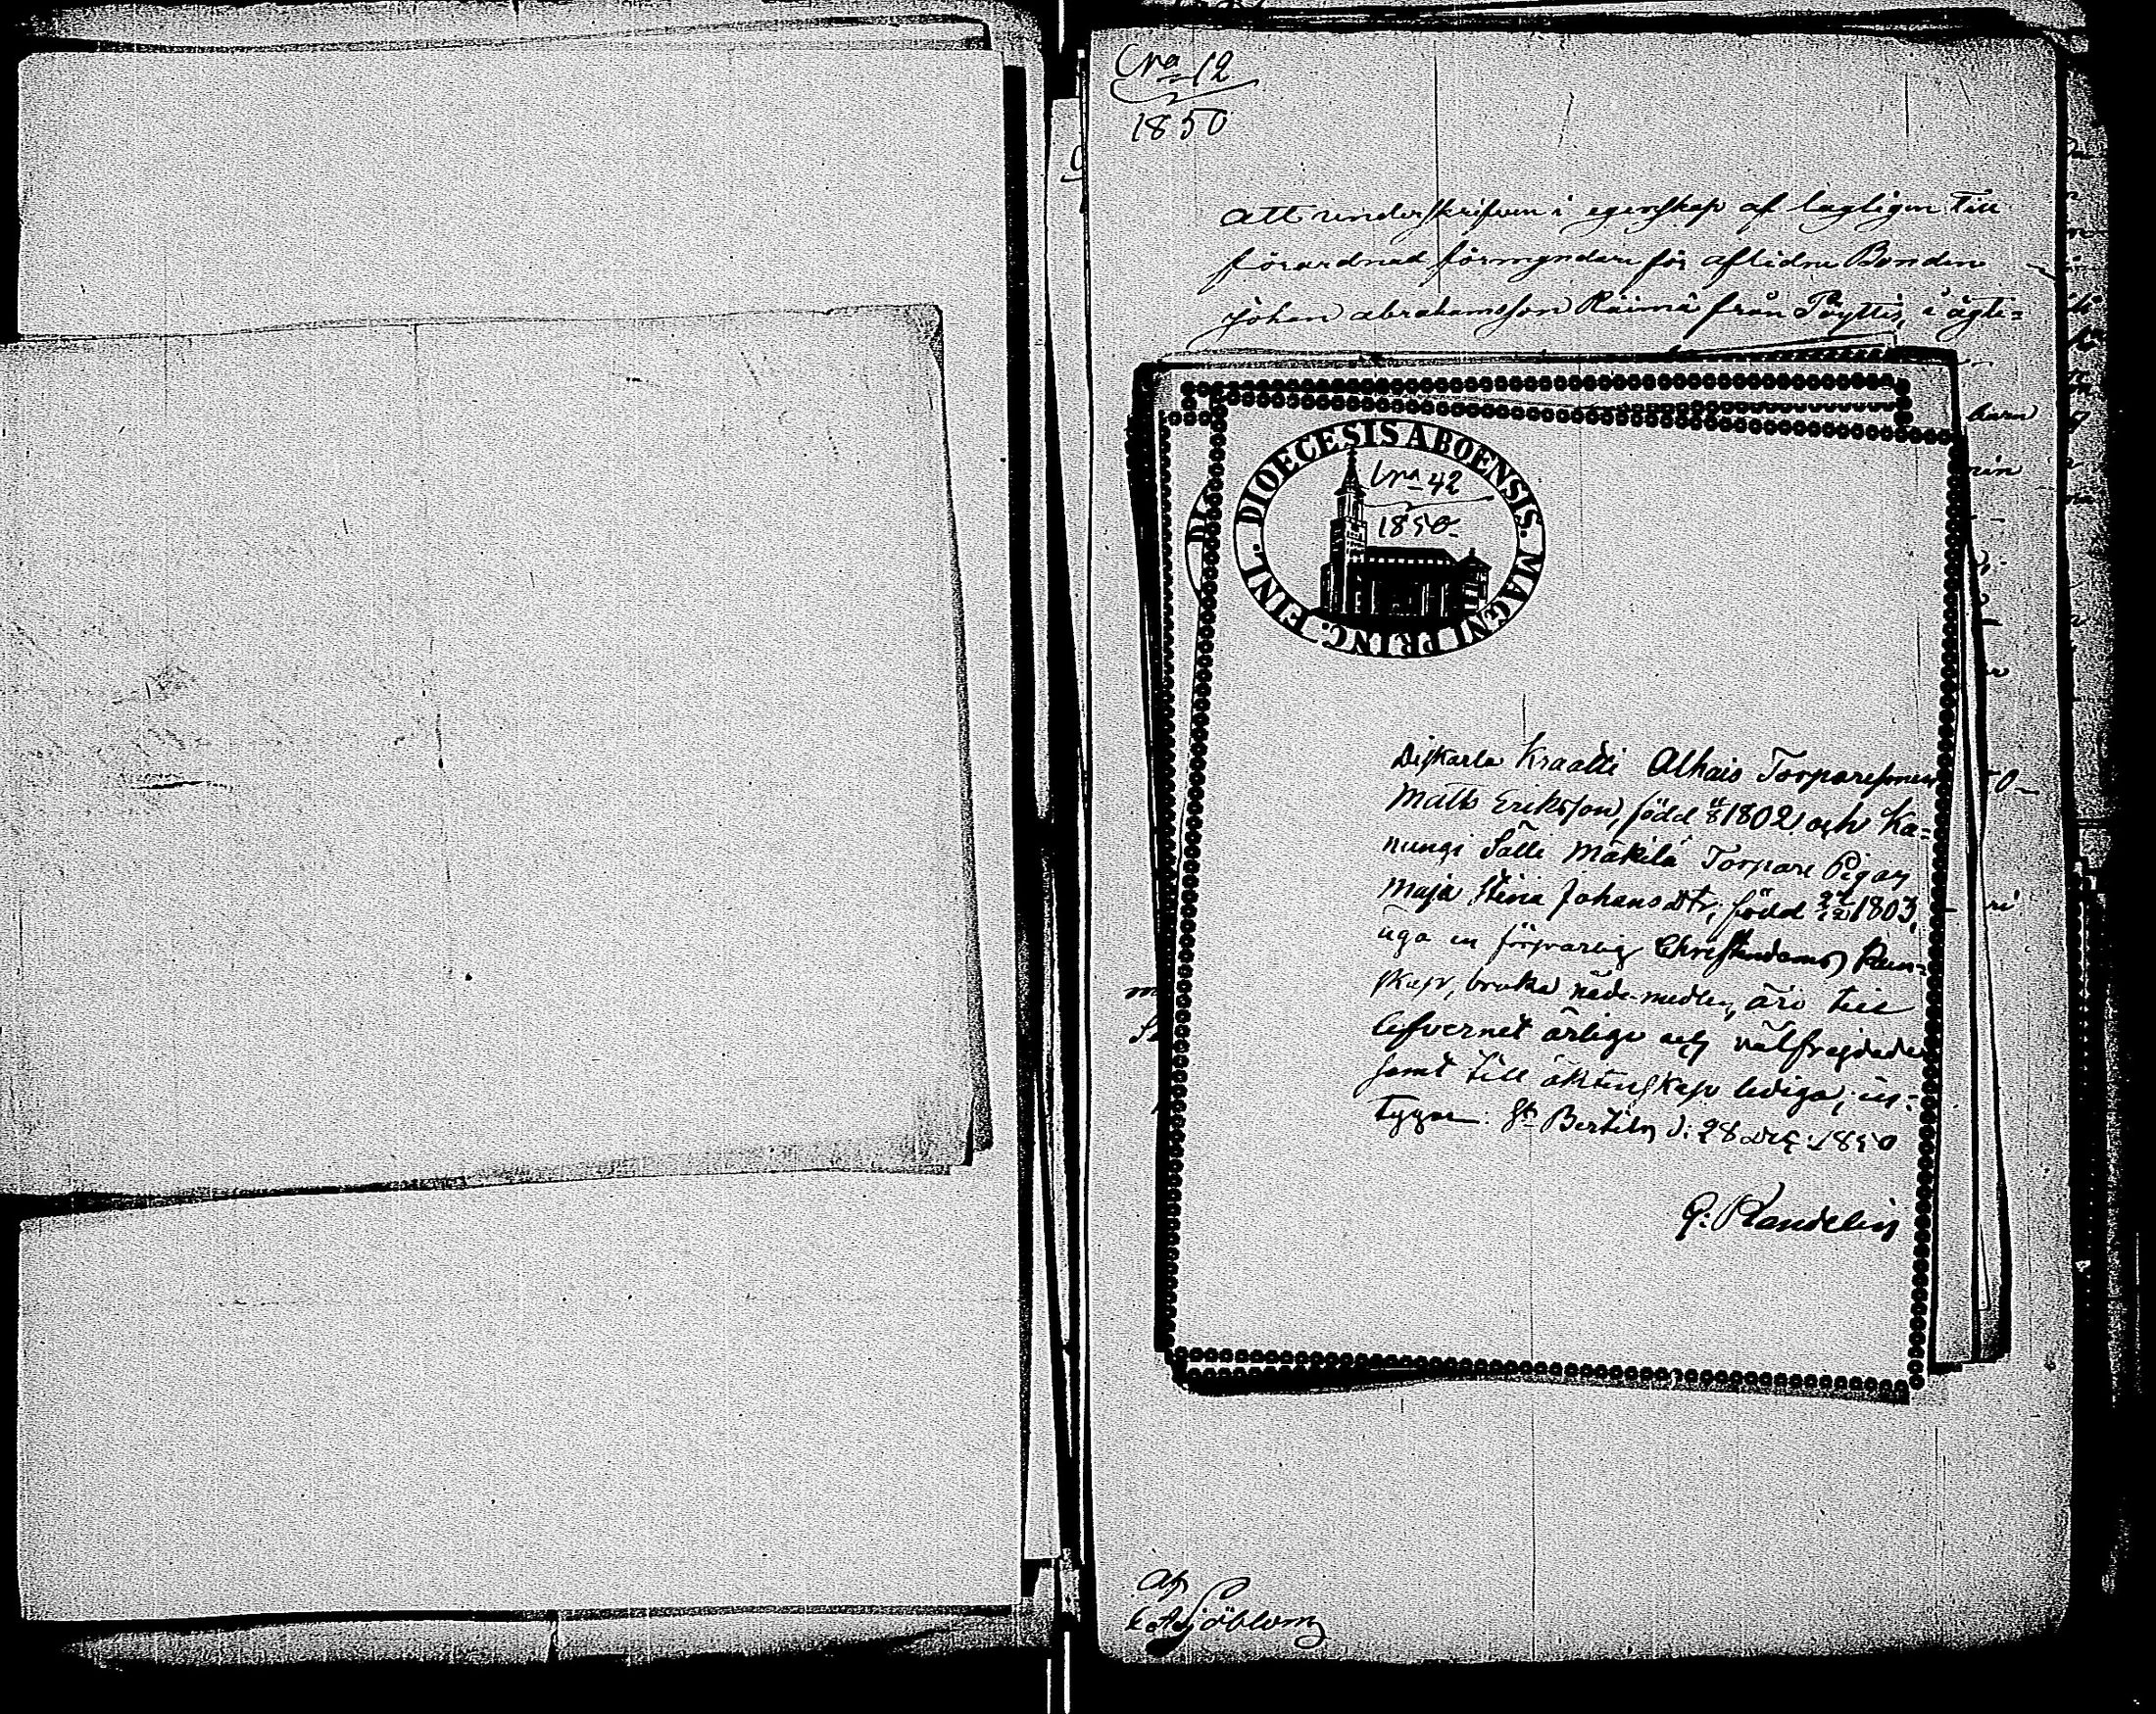 N:o 12
1850
att underskrifven i egenskap af lagligen till
förordnad förmyndare för aflidne Bonden
Johan Abrahamsson Räimä från Pöyttis, i ägte=
barn
DIOECESIS ABOENSIS. MAGNI PRINC. FINL.
N:o 42
1850
Kraatti Alhais Torparesonen
Matts Eriksson, född 1802 och Ka=
nungi Sälli Mäkilä Torpare Pigan
Maja Stina Johansdtr, född 1803,
äga en försvarlig Christendoms Kun=
skap, bruka nådemedlen, äro till
lefvernet ärliga och välfrejdade
samt till äktenskap lediga; in=
tygar. St Bertils d: 28 Dec: 1850
Af
Sjöblom